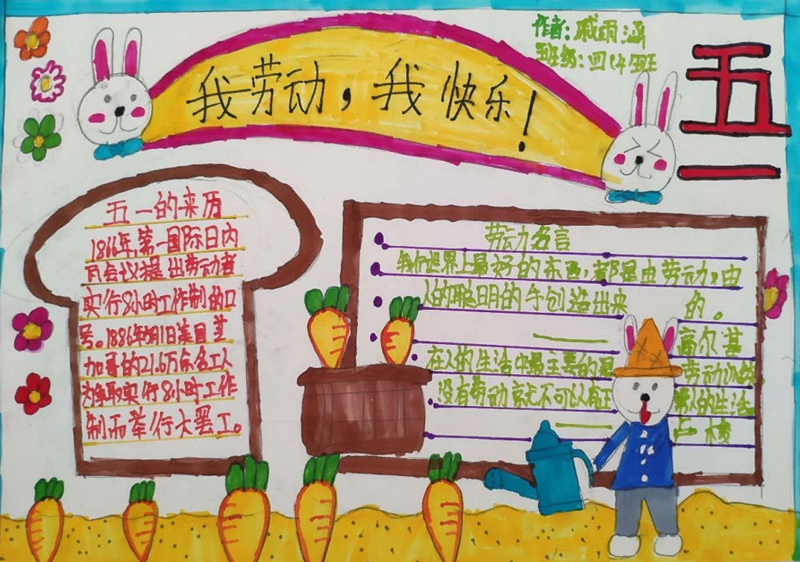 我劳动，我快乐！
作者：戚雨涵
班级：四
五一
五一的来历
1866年,第一国际日内
瓦会议提出劳动者
实行8小时工作制的口
号。1886年5月1日美国芝
加哥的21.6万余名工人
为争取实行8小时工作
制而举行大罢工。
劳动名言
我们世界上最好的东西,都是由劳动,由
人的聪明的手创造出来的。
——高尔基
在人的生活中最主要的是劳动训练
没有劳动就不可以有正常人的生活
——卢梭